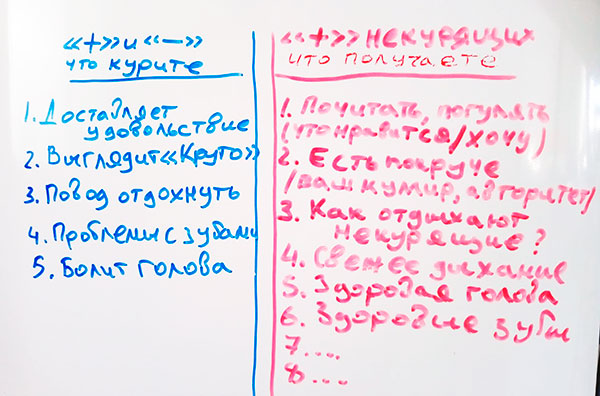 «+» и «–»
что курите
1. Доставляет
удовольствие
2. Выглядит «Круто»
3. Повод отдохнуть
4. Проблемы с зубами
5. Болит голова
«+» некурящих
что получаете
1. Почитать, погулять
(что нравится/хочу)
2. Есть покруче
/ваш кумир, авторитет/
3. Как отдыхают
некурящие?
4. Свежее дыхание
5. Здоровая голова
6. Здоровые зубы
7....
8....